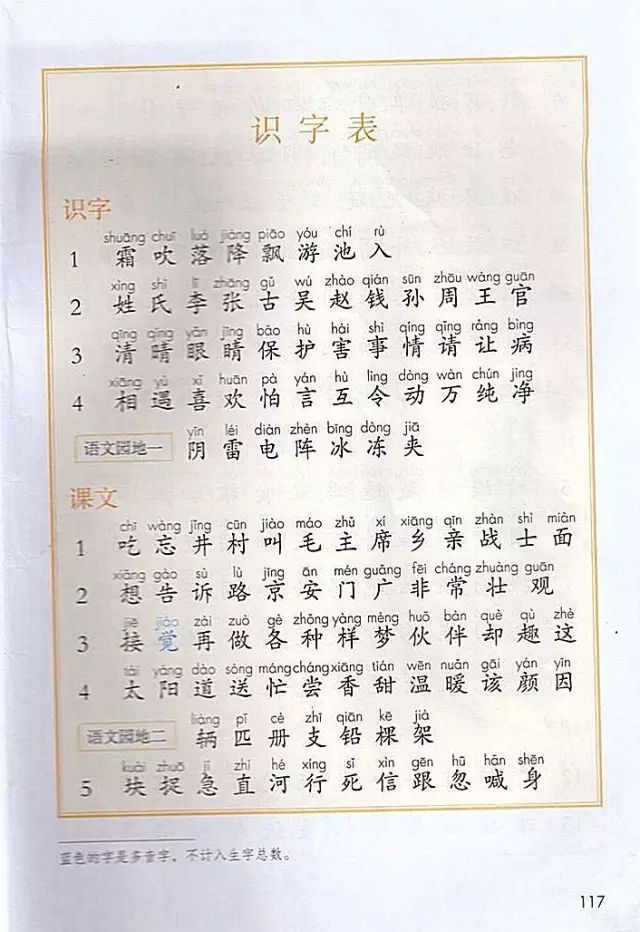 识字表
识字
shuāng chuī luò jiàng piāo yóu chí rù
1 霜 吹 落 降 飘 游 池 入
xìng shì lǐ zhāng gǔ wú zhào qián sūn zhōu wáng guān
2 姓 氏 李 张 古 吴 赵 钱 孙 周 王 官
qīng qíng yǎn jīng bǎo hù hài shì qíng qǐng ràng bìng
3 清 晴 眼 睛 保 护 害 事 情 请 让 病
xiāng yù xǐ huān pà yán hù lìng dòng wàn chún jìng
4 相 遇 喜 欢 怕 言 互 令 动 万 纯 净
yīn léi diàn zhèn bīng dòng jiā
语文园地一 阴 雷 电 阵 冰 冻 夹
课文
chī wàng jǐng cūn jiào máo zhǔ xí xiāng qīn zhàn shì miàn
1 吃 忘 井 村 叫 毛 主 席 乡 亲 战 士 面
xiǎng gào sù lù jīng ān mén guǎng fēi cháng zhuàng guān
2 想 告 诉 路 京 安 门 广 非 常 壮 观
jiē jiào zài zuò gè zhǒng yàng mèng huǒ bàn què qù zhè
3 接 觉 再 做 各 种 样 梦 伙 伴 却 趣 这
tài yáng dào sòng máng cháng xiāng tián wēn nuǎn gāi yán yīn
4 太 阳 道 送 忙 尝 香 甜 温 暖 该 颜 因
liàng pǐ cè zhī qiān kē jià
语文园地二 辆 匹 册 支 铅 棵 架
kuài zhuō jí zhí hé xíng sǐ xìn gēn hū hǎn shēn
5 块 捉 急 直 河 行 死 信 跟 忽 喊 身
蓝色的字是多音字，不计入生字总数。
117